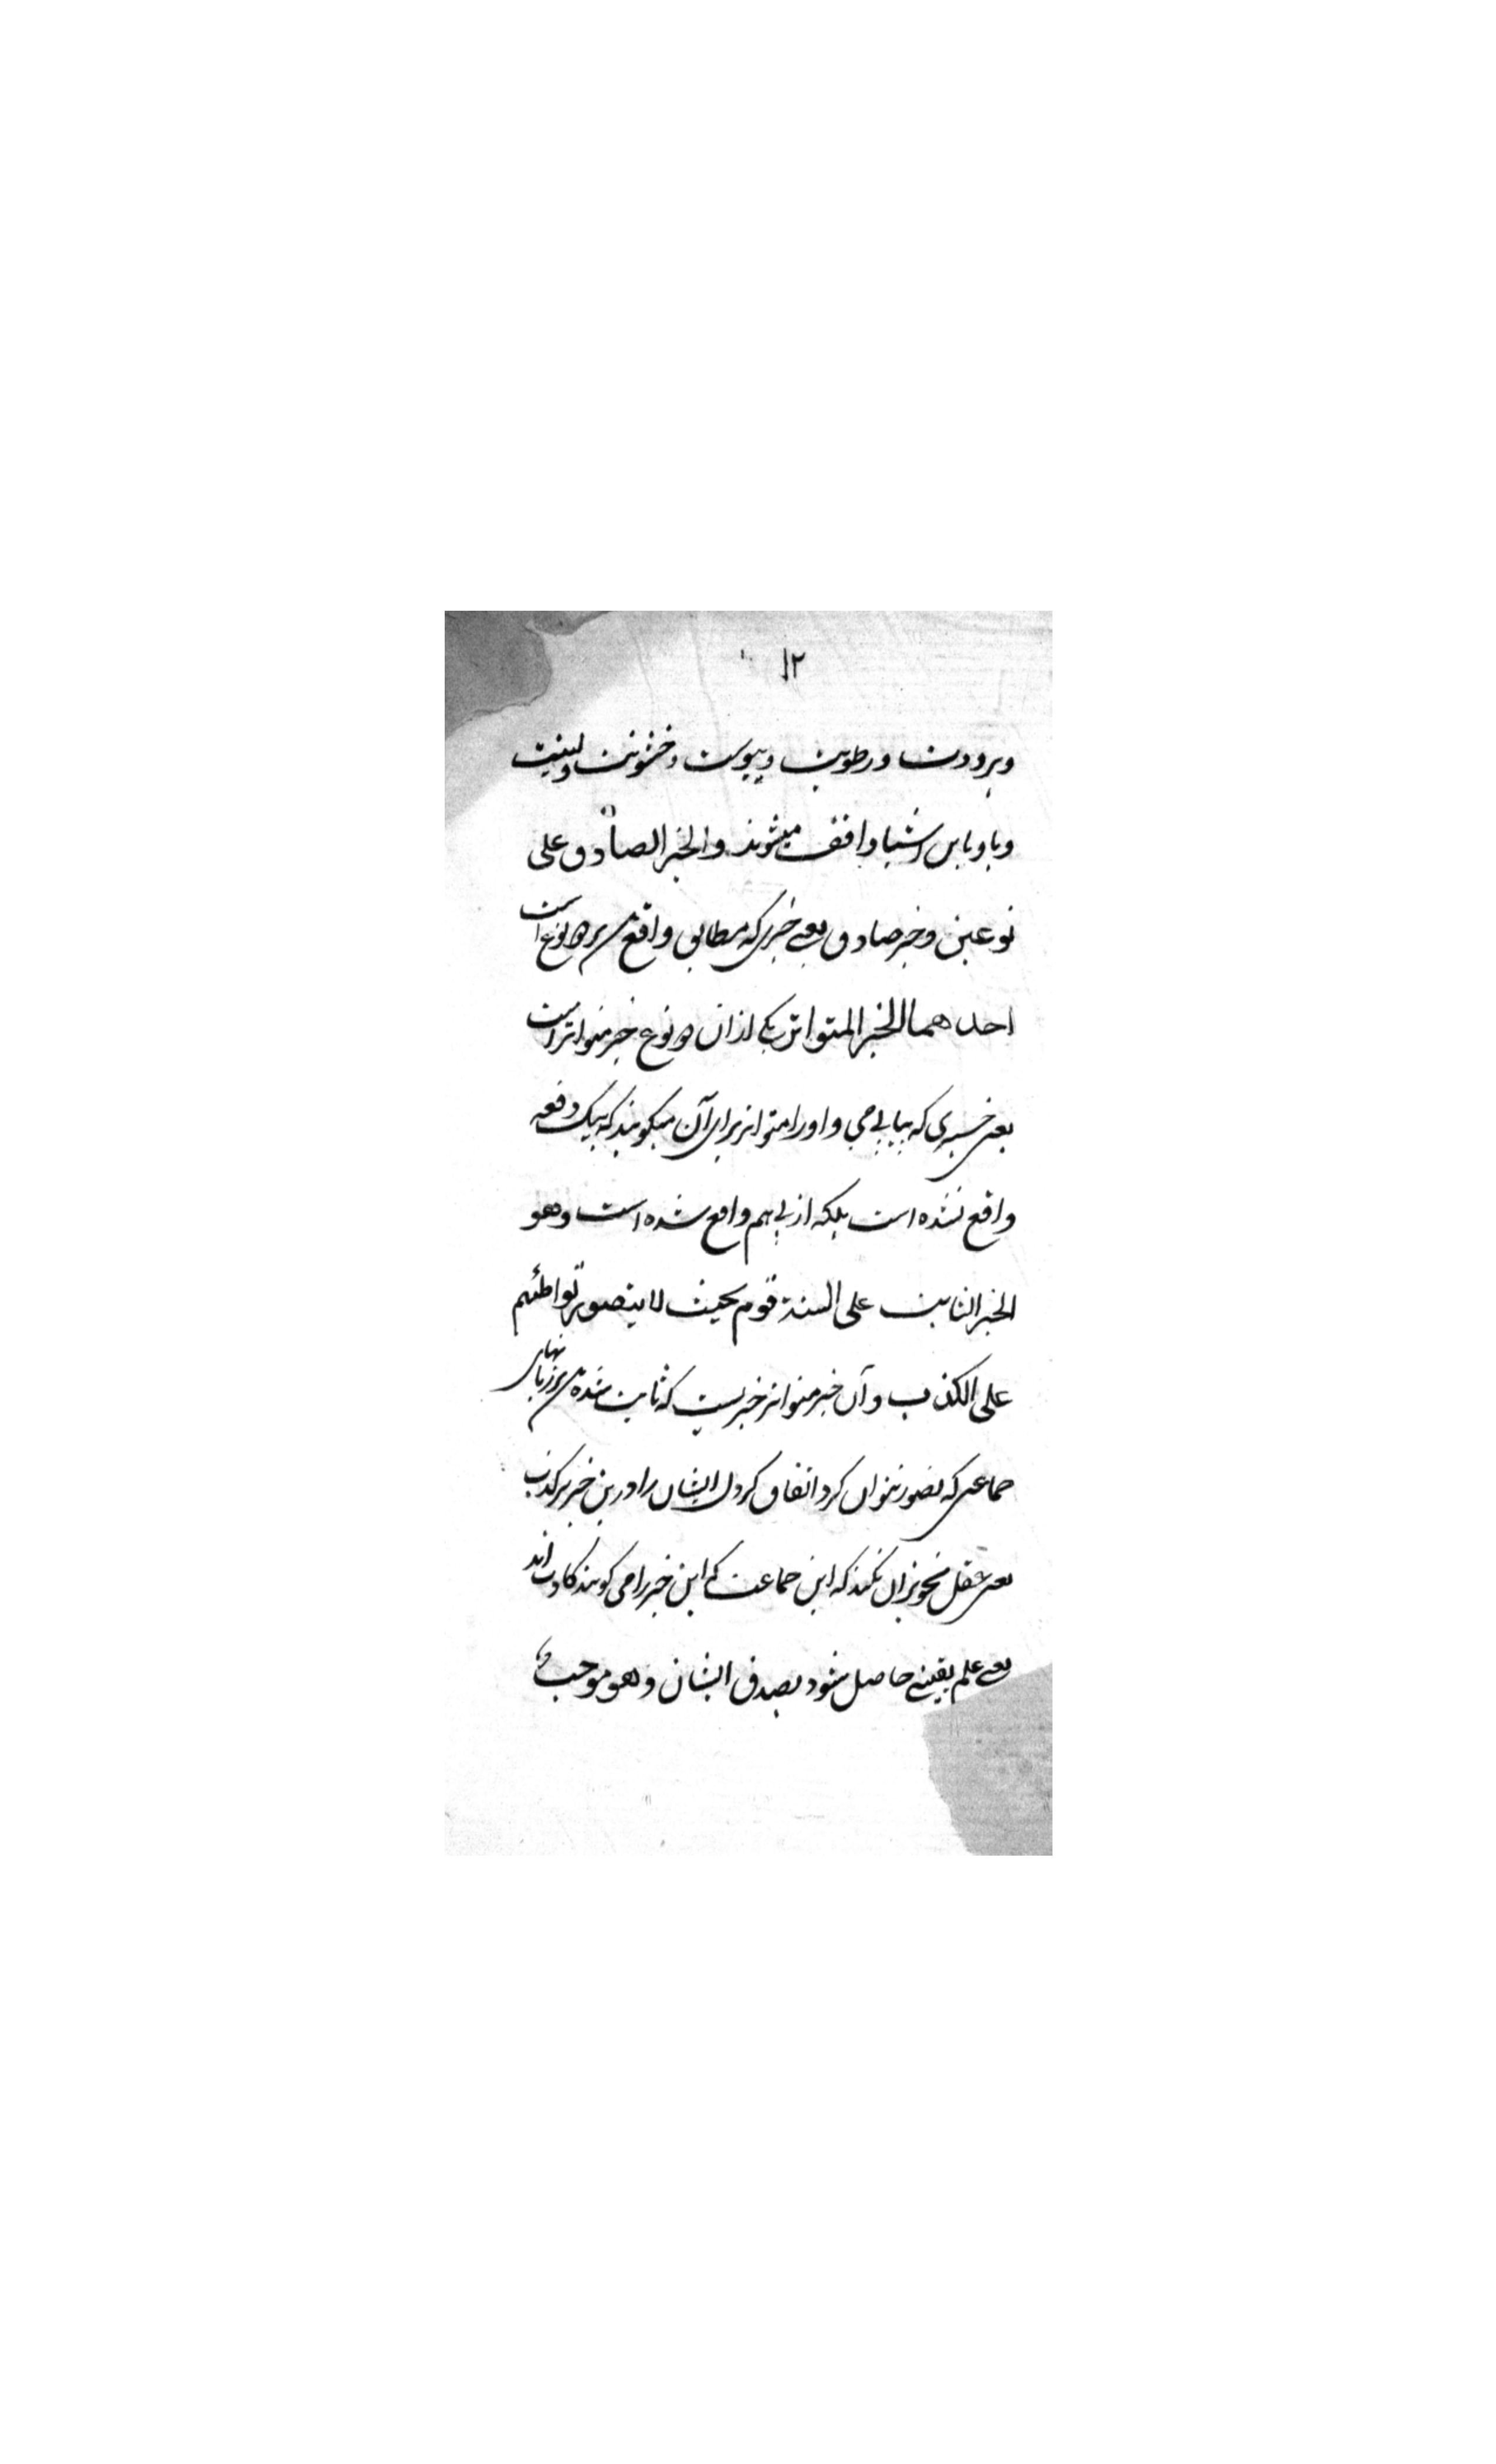 ١٢
وبرودت ورطوبت ویبوست وخشونت ولینیت
وباوباین اشیا واقف میشوند والخبر الصادق علی
نوعین وخبر صادق یعنے خبری که مطابق واقع بر دو نوع است
احدهما الخبر المتواتر یکے ازان دو نوع خبر متواتر است
یعنی خبری که پیاپے می واورا متواتر برای آن میگویند که بیک دفعه
واقع نشده است بلکه از پے هم واقع شده است وهو
الخبر الثابت علی السنة قوم بحیث لا یتصور تواطئهم
علی الکذب وآن خبر متواتر خبریست که ثابت شده بر زبانهای
جماعتی که تصور نتوان کرد اتفاق کردن ایشان را درین خبر بر کذب
یعنی عقل تجویز آن نکند که این جماعت که این خبر را می گویند کاذب اند
یعنے علم یقینے حاصل شود بصدق ایشان وهو موجب